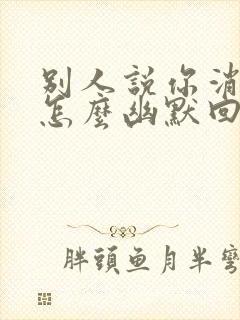 別人說你消
怎麼幽默回
胖頭鱼月半彎